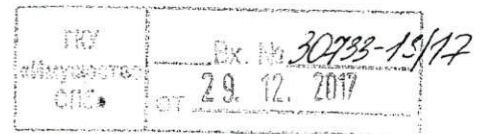 ГКУ
«Имущество
СПб»
Вх. № 30733-15/17
от 29. 12. 2017